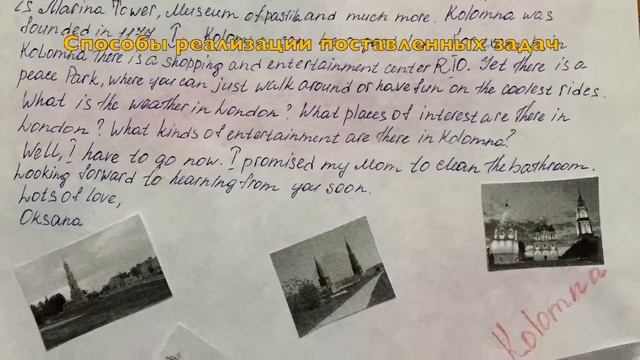 is Marina Tower, Museum of pastila and much more. Kolomna was
founded in 1177. I
Способы реализации поставленных задач
Kolomna there is a shopping and entertainment center RIO. Yet there is a
peace Park, where you can just walk around or have fun on the coolest rides.
What is the weather in London? What places of interest are there in
London? What kinds of entertainment are there in Kolomna?
Well, I have to go now. I promised my Mom to clean the bathroom.
Looking forward to hearning from you soon.
Lots of love,
Oksana
Kolomna